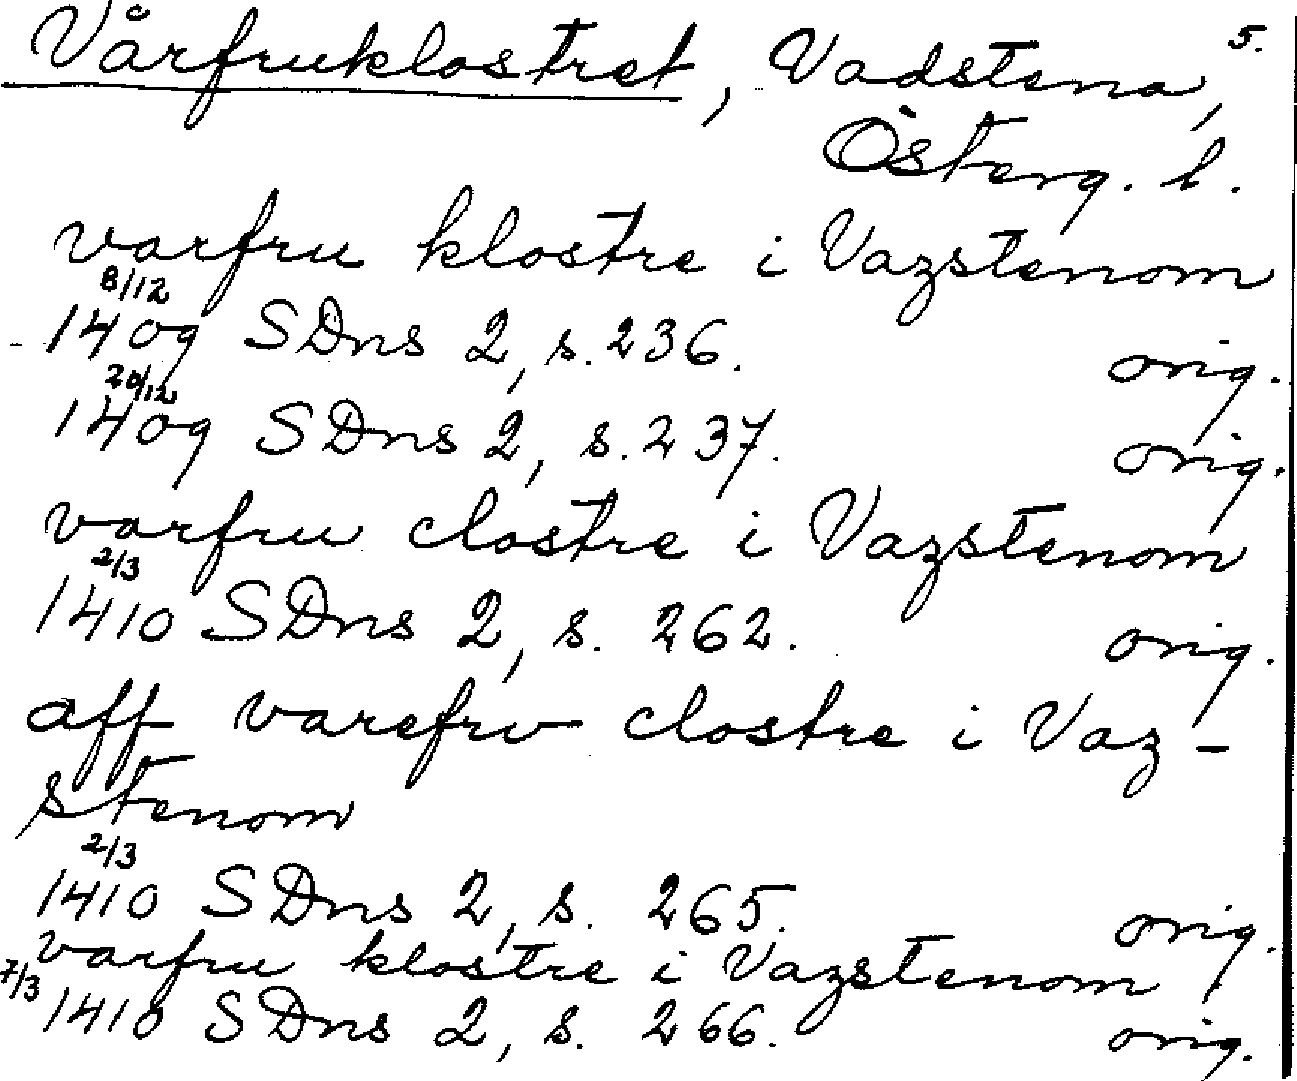 Vårfruklostret, Vadstena, 5.
Österg. l.
varfru klostre i Vazstenom
8/12
1409 SDns 2, s. 236. orig.
20/12
1409 SDns 2, s. 237. orig.
varfru clostre i Vazstenom
2/3
1410 SDns 2, s. 262. orig.
aff varefrv clostre i Vaz-
stenom
2/3
1410 SDns 2, s. 265. orig.
varfru klostre i Vazstenom
7/3
1410 SDns 2, s. 266. orig.